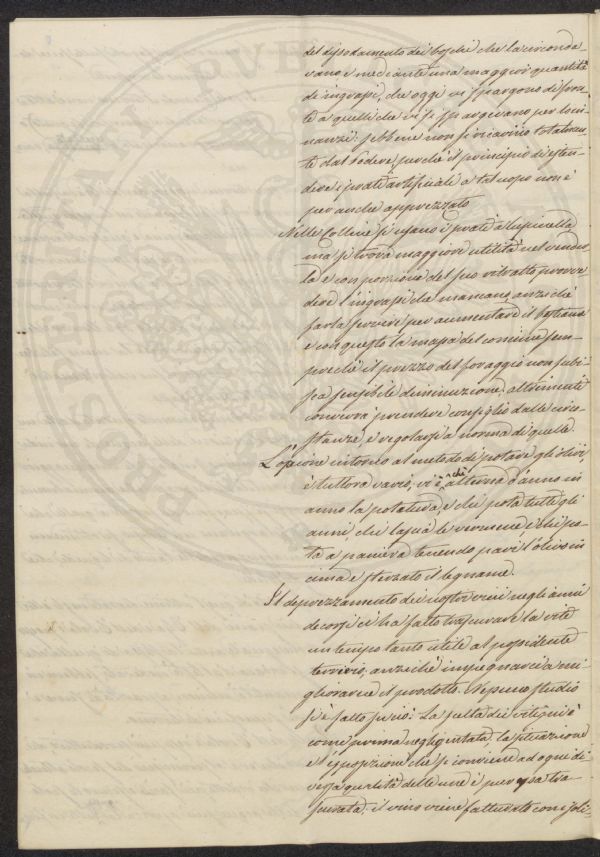 del dissodamento dei boschi che la circonda-
vano, e mediante una maggior quantità
di ingrassi, che oggi vi si spargono di fron-
te a quelli che vi si spargevano per lo in-
nanzi: sebbene non si ricavino totalmen-
te dal Podere, perchè il principio di esten-
dere i prati artificiali a tal uopo non è
per anche apprezzato
Nelle Colline si usano i prati a Lupinella
ma si trova maggiore utilità nel vender-
la e con porzione del suo ritratto provve
dere l'ingrassi che mancano, anzi chè
farla servire per aumentare il bestiame
e con questo la massa del concime sem-
prechè il prezzo del foraggio non subi-
sca sensibile diminuzione, altrimenti
converrà prendere consiglio dalle circo-
stanze, e regolarsi a norma di quelle
L'opinione intorno al metodo di potare gli olivi,
è tuttora vario, vi è chi alterna d'anno in
anno la potatura, e chi pota tutti gli
anni, chi lascia le vermene, e chi po-
ta a paniera tenendo pari l'olivo in
cima e sterzato il legname.
Il deprezzamento dei nostri vini negli anni
decorsi ci ha fatto trascurare la vite
un tempo tanto utile al possidente
terriero, anzichè impegnarci a mi-
gliorarne il prodotto. Nessuno studio
si è fatto perciò: La scelta dei vitigni è
come prima negligentata, la situazione
e l'esposizione che si conviene ad ogni di-
versa qualità delle uve è pur essa tra
scurata: il vino viene fatturato con i soli-